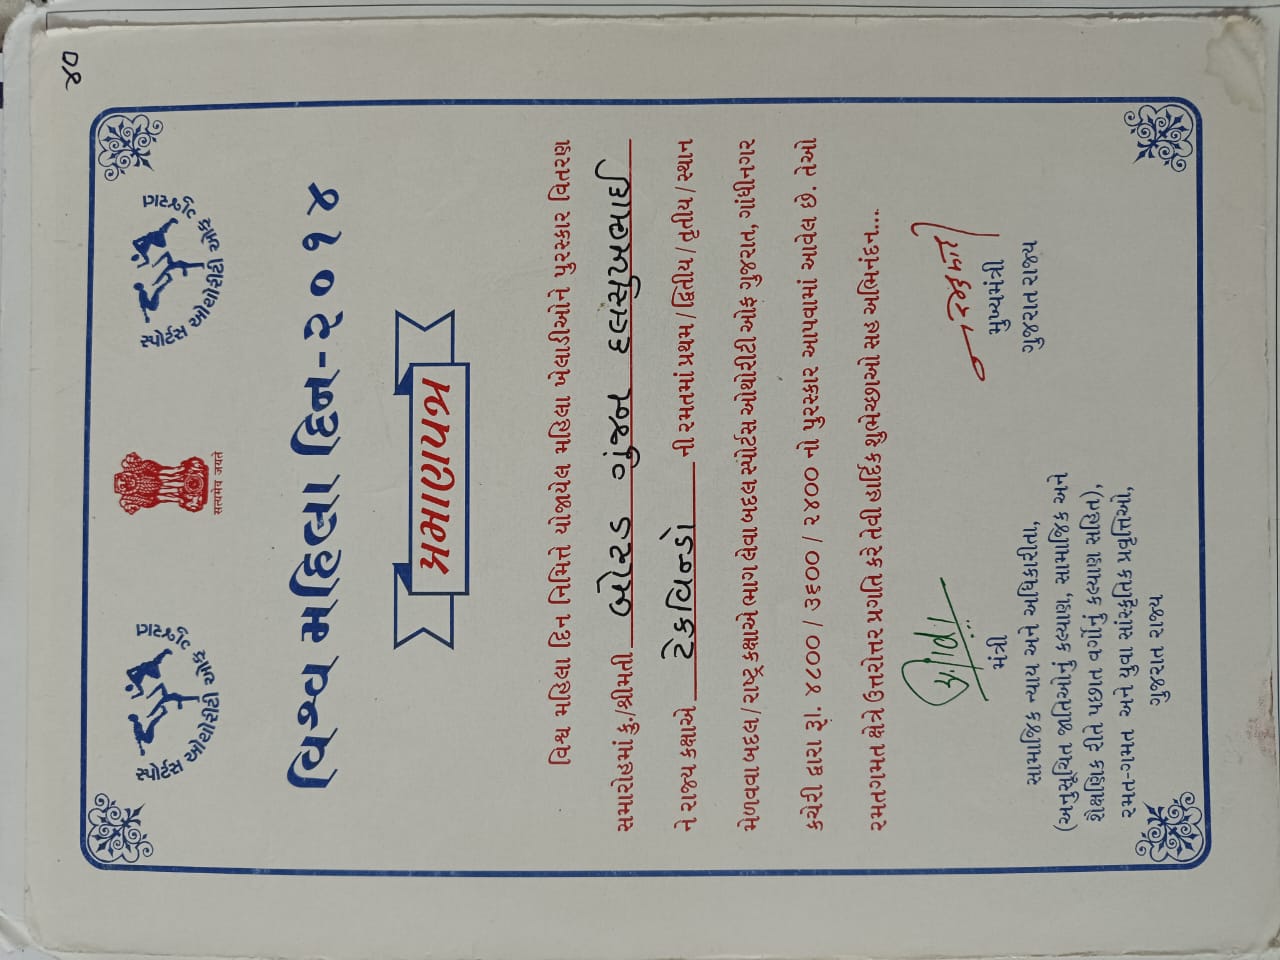 ૪૦
સ્પોર્ટસ ઓથોરીટી ઓફ ગુજરાત
सत्यमेव जयते
સ્પોર્ટસ ઓથોરીટી ઓફ ગુજરાત
વિશ્વ મહિલા દિન-૨૦૧૪
પ્રમાણપત્ર
વિશ્વ મહિલા દિન નિમિત્તે યોજાયેલ મહિલા ખેલાડીઓને પુરસ્કાર વિતરણ
સમારોહમાં કુ./શ્રીમતી બોરડ ગુંજન દલસુખભાઈ
ને રાજ્ય કક્ષાએ ટેકવિન્ડો ની રમતમાં પ્રથમ / દ્વિતીય / તૃતીય / સ્થાન
મેળવવા બદલ / રાષ્ટ્ર કક્ષાએ ભાગ લેવા બદલ સ્પોર્ટસ ઓથોરીટી ઓફ ગુજરાત, ગાંધીનગર
કચેરી દ્વારા રૂા. ૪૮૦૦ / ૩૬૦૦ / ૨૪૦૦ નો પુરસ્કાર આપવામાં આવેલ છે. તેઓ
રમતગમત ક્ષેત્રે ઉત્તરોત્તર પ્રગતિ કરે તેવી હાર્દિક શુભેચ્છાઓ સહ અભિનંદન...
મંત્રી
સામાજિક ન્યાય અને અધિકારીતા,
(અનુસૂચિત જાતિઓનું કલ્યાણ, સામાજિક અને
શૈક્ષણિક રીતે પછાત વર્ગોનું કલ્યાણ સહિત),
રમત-ગમત અને યુવા સાંસ્કૃતિક પ્રવૃત્તિઓ,
ગુજરાત રાજ્ય
મુખ્યમંત્રી
ગુજરાત રાજ્ય